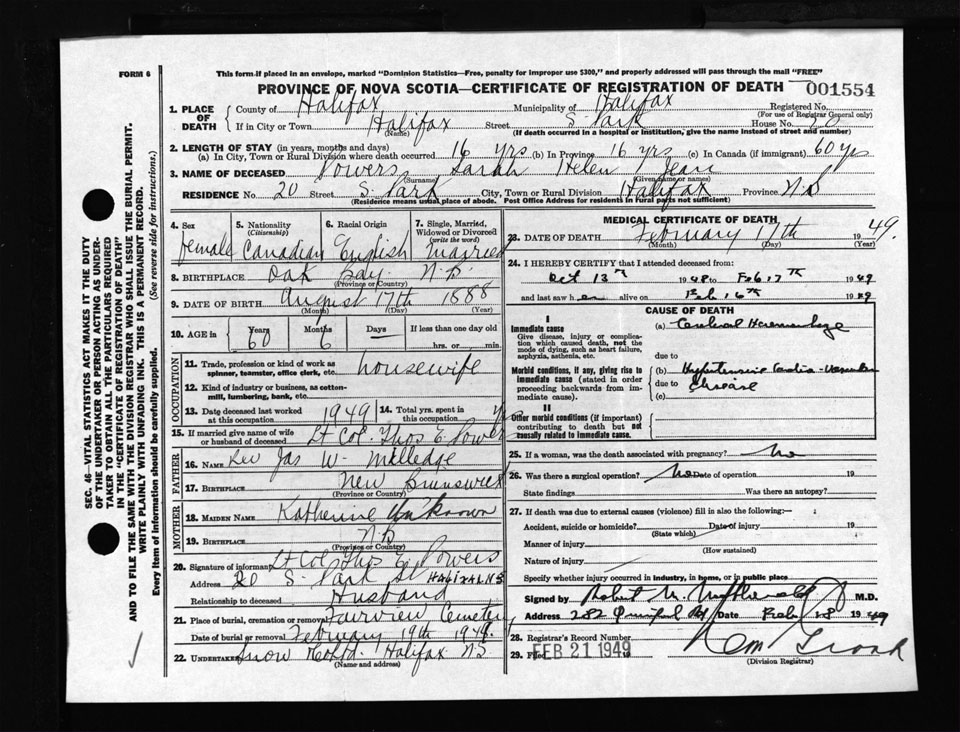 FORM 6
This form if placed in an envelope, marked "Dominion Statistics—Free, penalty for improper use $300," and properly addressed will pass through the mail "FREE"
PROVINCE OF NOVA SCOTIA—CERTIFICATE OF REGISTRATION OF DEATH
001554
1. PLACE OF DEATH
County of Halifax Municipality of Halifax Registered No.
(For use of Registrar General only)
If in City or Town Halifax Street S. Park House No. 20
(Name) (If death occurred in a hospital or institution, give the name instead of street and number)
2. LENGTH OF STAY (in years, months and days)
(a) In City, Town or Rural Division where death occurred 16 yrs (b) In Province 16 yrs (c) In Canada (if immigrant) 60 yrs
3. NAME OF DECEASED Powers Sarah Helen Jean
(Surname) (Given name or names)
RESIDENCE No. 20 Street S. Park City, Town or Rural Division Halifax Province N.S
(Residence means usual place of abode. Post Office Address for residents in rural parts not sufficient)
4. Sex 5. Nationality (Citizenship) 6. Racial Origin 7. Single, Married, Widowed or Divorced (write the word)
female Canadian English Married
8. BIRTHPLACE Oak Bay N.B.
(Province or Country)
9. DATE OF BIRTH August 17th 1888
(Month) (Day) (Year)
10. AGE in Years Months Days If less than one day old
60 6 — hrs. or min.
OCCUPATION
11. Trade, profession or kind of work as spinner, teamster, office clerk, etc. housewife
12. Kind of industry or business, as cotton-mill, lumbering, bank, etc.
13. Date deceased last worked at this occupation 1949 14. Total yrs. spent in this occupation
15. If married give name of wife or husband of deceased Lt Col. Thos E. Powers
FATHER
16. NAME Rev Jas W. Milledge
17. BIRTHPLACE New Brunswick
(Province or Country)
MOTHER
18. MAIDEN NAME Katherine Unknown
19. BIRTHPLACE N.B
(Province or Country)
20. Signature of informant Lt Col Thos E. Powers
Address 20 S. Park St HALIFAX N.S
Relationship to deceased Husband
21. Place of burial, cremation or removal Fairview Cemetery
Date of burial or removal February 19th 1949.
22. Undertaker Snow & Co Ltd. Halifax N.S.
(Name and address)
MEDICAL CERTIFICATE OF DEATH
23. DATE OF DEATH February 17th 1949.
(Month) (Day) (Year)
24. I HEREBY CERTIFY that I attended deceased from:
Oct 13th 1948 to Feb 17th 1949
and last saw her alive on Feb 16th 1949
CAUSE OF DEATH
I
Immediate cause
Give disease, injury or complication which caused death, not the mode of dying, such as heart failure, asphyxia, asthenia, etc.
(a) Cerebral Hemorrhage
due to
Morbid conditions, if any, giving rise to immediate cause (stated in order proceeding backwards from immediate cause).
(b) Hypertensive Cardio-Vascular
due to Disease
(c)
II
Other morbid conditions (if important) contributing to death but not causally related to immediate cause.
25. If a woman, was the death associated with pregnancy? No
26. Was there a surgical operation? No Date of operation 19
State findings Was there an autopsy?
27. If death was due to external causes (violence) fill in also the following:—
Accident, suicide or homicide? Date of injury 19
(State which)
Manner of injury
(How sustained)
Nature of injury
Specify whether injury occurred in industry, in home, or in public place
Signed by Robert M. M.D.
Address 282 Rd Date Feb 18 1949
28. Registrar's Record Number
29. Filed FEB 21 1949 19
(Division Registrar)
SEC. 46—VITAL STATISTICS ACT MAKES IT THE DUTY
OF THE UNDERTAKER OR PERSON ACTING AS UNDERTAKER TO OBTAIN ALL THE PARTICULARS REQUIRED
IN THE "CERTIFICATE OF REGISTRATION OF DEATH"
AND TO FILE THE SAME WITH THE DIVISION REGISTRAR WHO SHALL ISSUE THE BURIAL PERMIT.
WRITE PLAINLY WITH UNFADING INK. THIS IS A PERMANENT RECORD.
Every item of information should be carefully supplied. (See reverse side for instructions.)